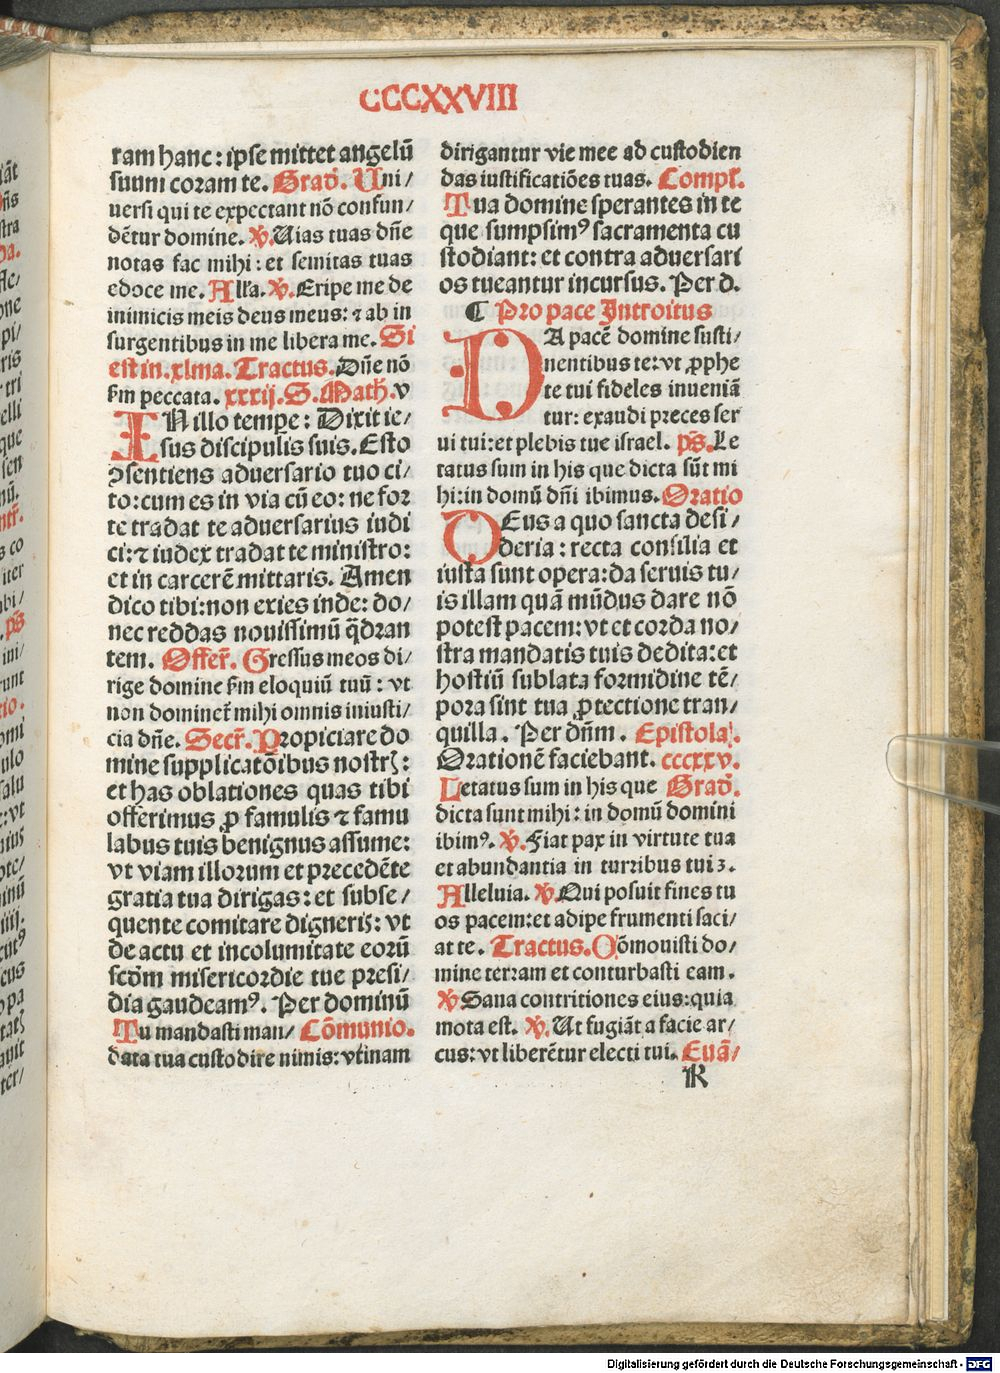 CCCXXVIII
ram hanc: ipse mittet angelū
suum coram te. Grad̄. Uni/
uersi qui te expectant nō confun/
dētur domine. ℣. Uias tuas dn̄e
notas fac mihi: et semitas tuas
edoce me. Alla. ℣. Eripe me de
inimicis meis deus meus: ⁊ ab in
surgentibus in me libera me. Si
est in .xlma. Tractus. Dn̄e nō
ẜm peccata. xxxij. S. Math̄. v
IN illo tempe: Dixit ie/
sus discipulis suis. Esto
ꝯsentiens aduersario tuo ci/
to: cum es in via cū eo: ne for
te tradat te aduersarius iudi
ci: ⁊ iudex tradat te ministro:
et in carcerē mittaris. Amen
dico tibi: non exies inde: do/
nec reddas nouissimū q̄dran
tem. Offer̄. Gressus meos di/
rige domine ẜm eloquiū tuū: vt
non dominet̄ mihi omnis iniusti/
cia dn̄e. Secr̄. Propiciare do
mine supplicatōibus nostrꝫ:
et has oblationes quas tibi
offerimus ꝓ famulis ⁊ famu
labus tuis benignus assume:
vt viam illorum et precedēte
gratia tua dirigas: et subse/
quente comitare digneris: vt
de actu et incolumitate eorū
scdm̄ misericordie tue presi/
dia gaudeamꝰ. Per dominū
Tu mandasti man/ Cōmunio.
data tua custodire nimis: vtinam
dirigantur vie mee ad custodien
das iustificatiōes tuas. Compl̄.
Tua domine sperantes in te
que sumpsimꝰ sacramenta cu
stodiant: et contra aduersari
os tueantur incursus. Per d.
¶ Pro pace Introitus
DA pacē domine susti/
nentibus te: vt ꝓphe
te tui fideles inueniā
tur: exaudi preces ser
ui tui: et plebis tue israel. ps̄. Le
tatus sum in his que dicta sūt mi
hi: in domū dn̄i ibimus. Oratio
DEus a quo sancta desi/
deria: recta consilia et
iusta sunt opera: da seruis tu/
is illam quā mūdus dare nō
potest pacem: vt et corda no/
stra mandatis tuis dedita: et
hostiū sublata formidine tē/
pora sint tua ꝓtectione tran/
quilla. Per dn̄m. Epistola.
Orationē faciebant. cccxxv.
Letatus sum in his que Grad̄.
dicta sunt mihi: in domū domini
ibimꝰ. ℣. Fiat pax in virtute tua
et abundantia in turribus tuis.
Alleluia. ℣. Qui posuit fines tu
os pacem: et adipe frumenti saci/
at te. Tractus. Cōmouisti do/
mine terram et conturbasti eam.
℣ Sana contritiones eius: quia
mota est. ℣. Ut fugiāt a facie ar/
cus: vt liberētur electi tui. Euā/
R
Digitalisierung gefördert durch die Deutsche Forschungsgemeinschaft - DFG